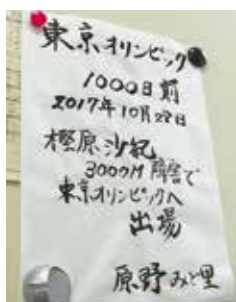 東京オリンピック
1000日前
2017年10月28日
樫原沙紀
3000M障害で
東京オリンピックへ
出場
原野みと里